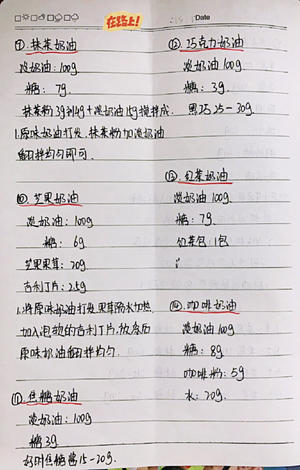 在路上!
Date
⑨ 抹茶奶油
淡奶油:100g
糖:7g
抹茶粉3g到4g+淡奶油15g搅拌成.
1.原味奶油打发.抹茶粉加淡奶油
翻拌均匀即可.
⑩ 芒果奶油
淡奶油:100g
糖:6g
芒果果茸:20g
吉利丁片:2.5g
1.将原味奶油打发.果茸隔水加热.
加入泡软的吉利丁片.放凉后
原味奶油翻拌均匀.
⑪ 焦糖奶油
淡奶油:100g
糖3g
好时焦糖酱15-20g.
⑫ 巧克力奶油
淡奶油100g
糖:3g.
黑巧25-30g.
⑬ 红茶奶油
淡奶油100g
糖:7g
红茶包:1包
⑭ 咖啡奶油
淡奶油100g
糖:8g
咖啡粉:5g
水:20g.